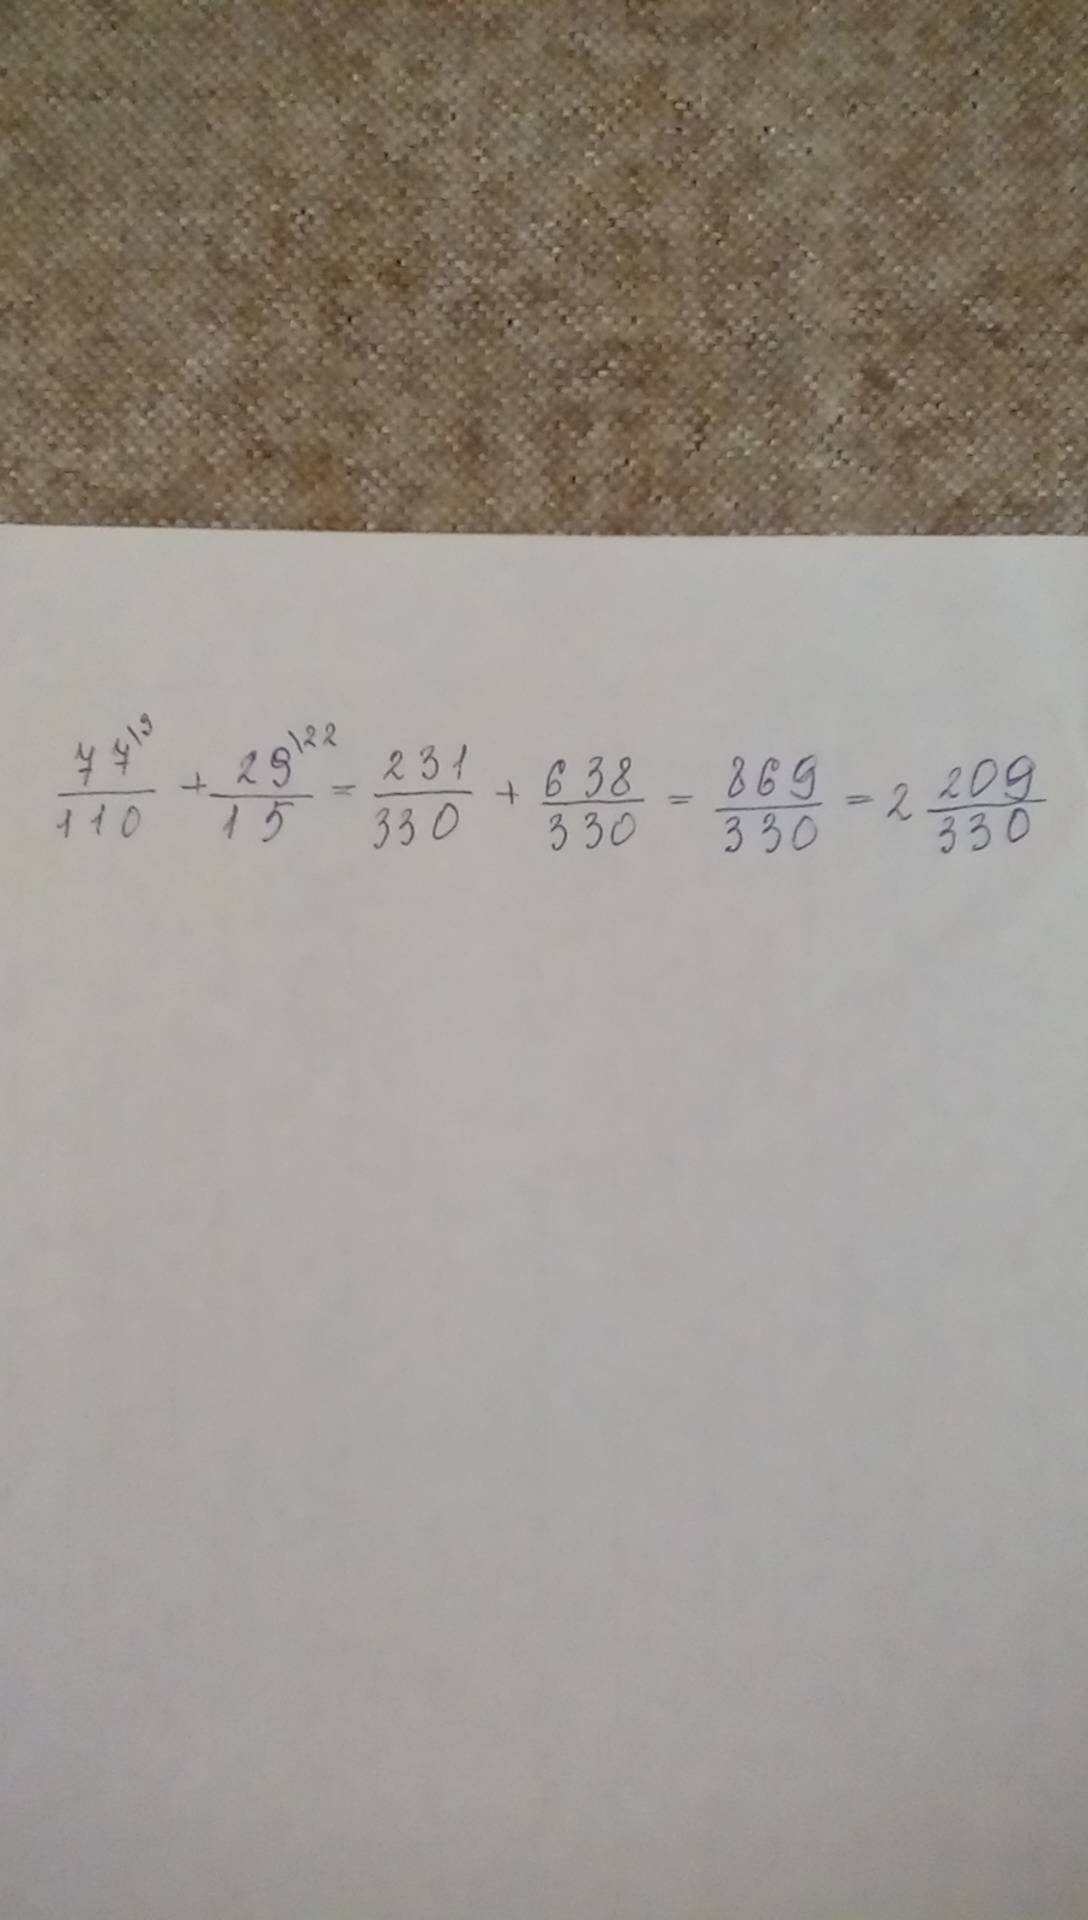 77\3/110 + 29\22/15 = 231/330 + 638/330 = 869/330 = 2 209/330